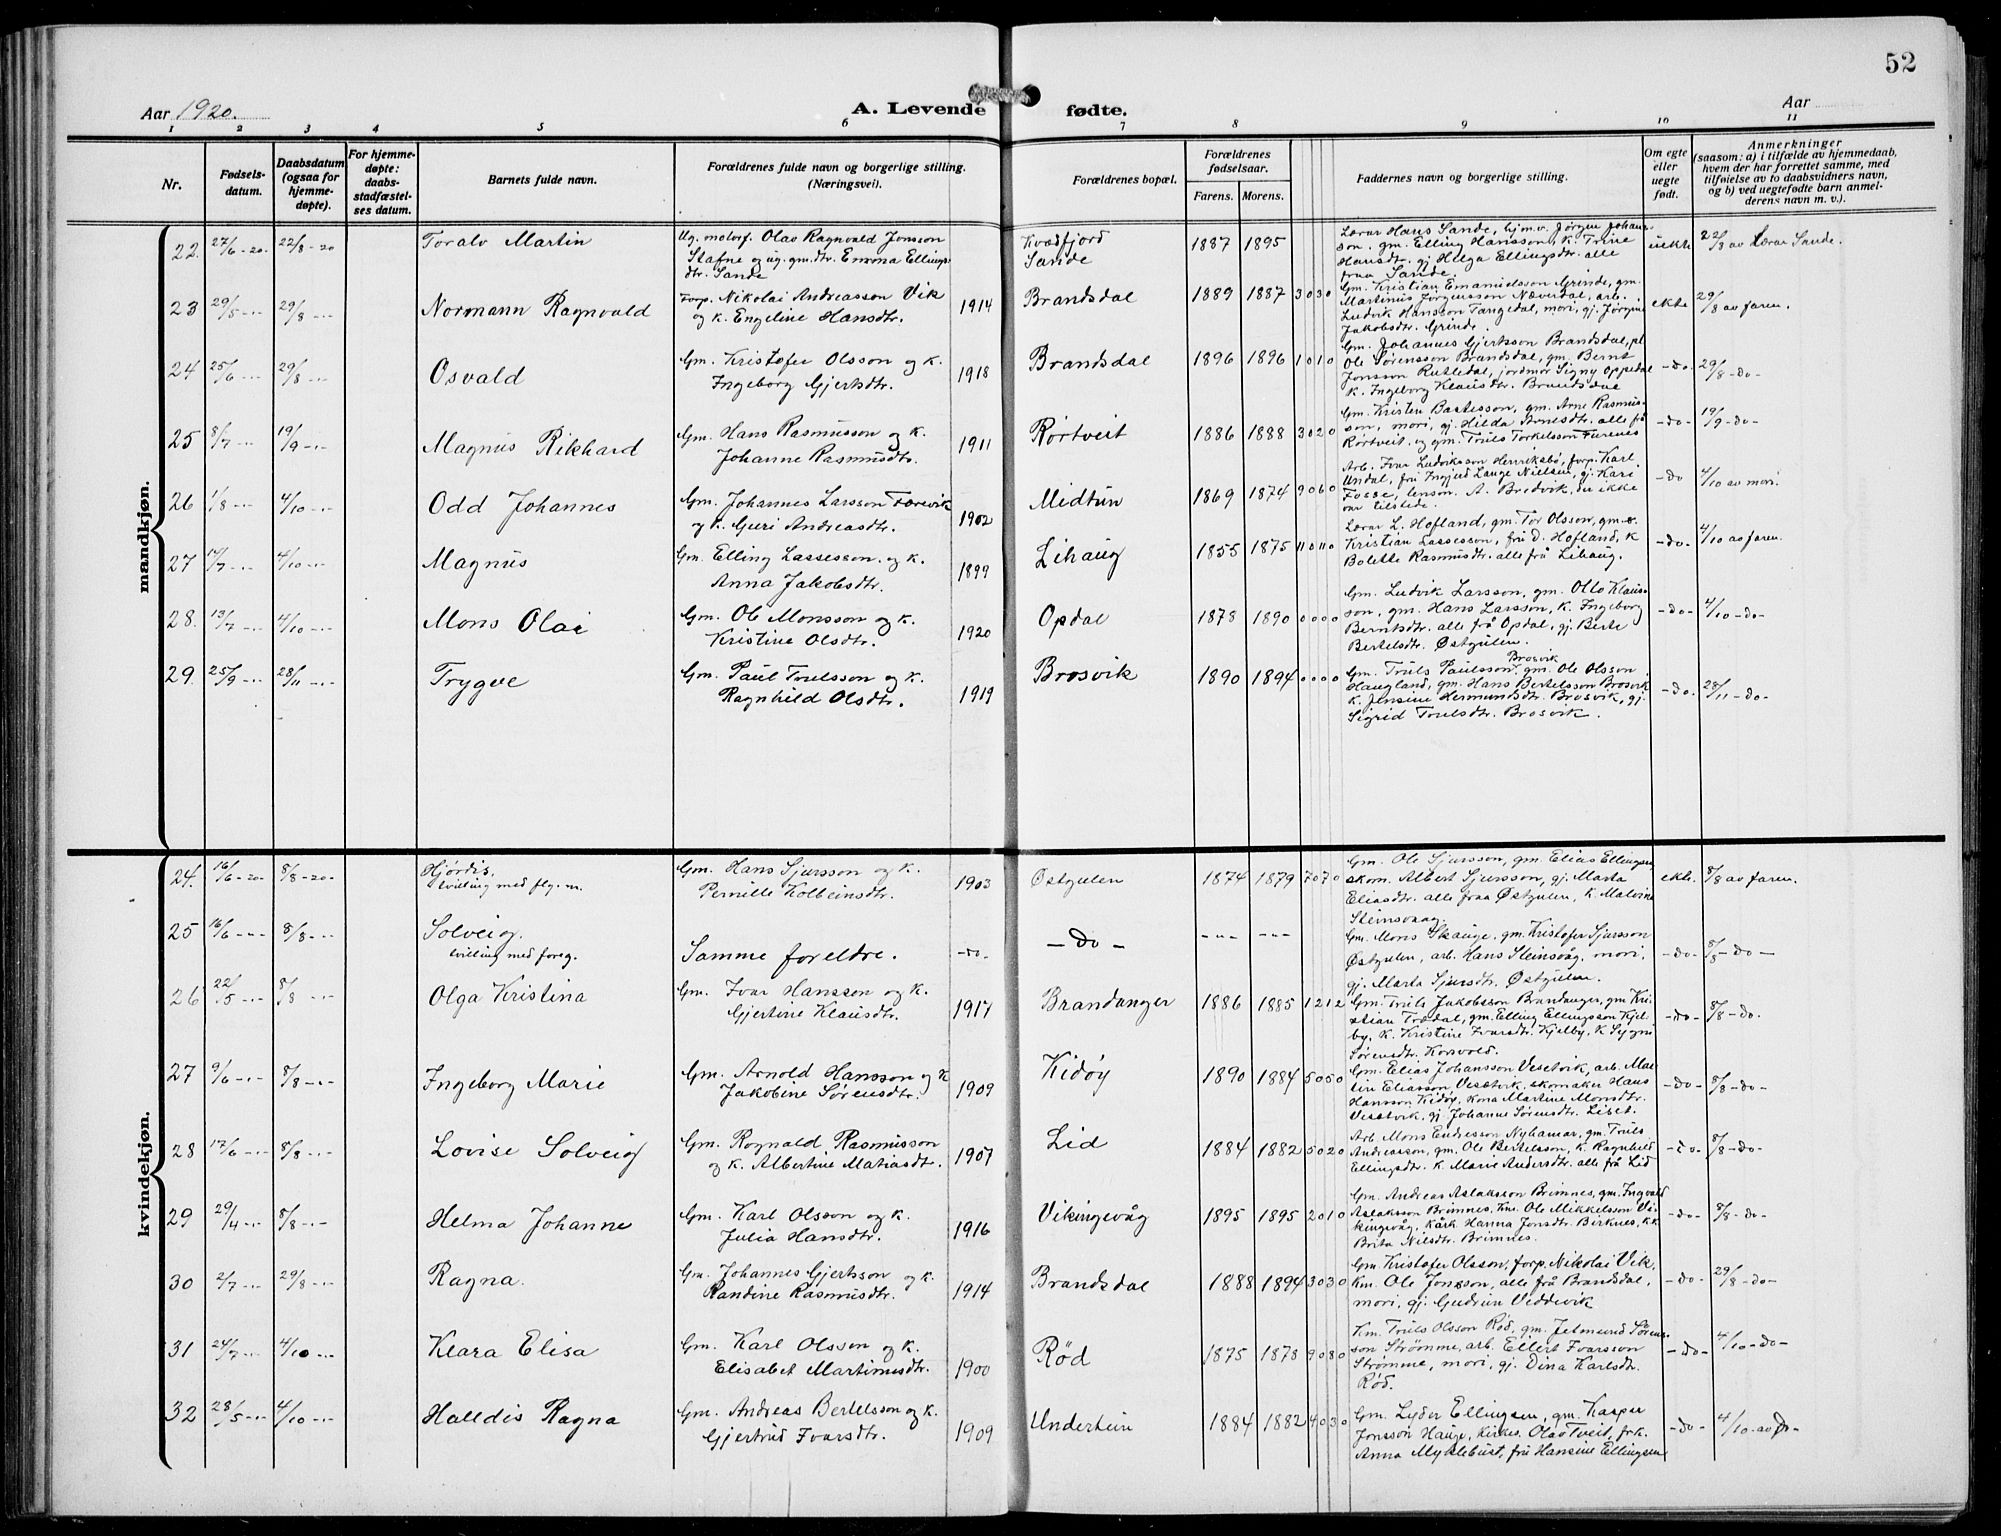 52
Aar 1920.
A. Levende fødte.
Aar
1 2 3 4 5 6 7 8 9 10 11
Nr.
Fødsels-
datum.
Daabsdatum
(ogsaa for
hjemme-
døpte).
For hjemme-
døpte:
daabs-
stadfæstel-
ses datum.
Barnets fulde navn.
Forældrenes fulde navn og borgerlige stilling.
(Næringsvei).
Forældrenes bopæl.
Forældrenes
fødselsaar.
Farens. Morens.
Faddernes navn og borgerlige stilling.
Om egte
eller
uegte
født.
Anmerkninger
(saasom: a) i tilfælde av hjemmedaab,
hvem der har forrettet samme, med
tilføielse av to daabsvidners navn,
og b) ved uegtefødte barn anmel-
derens navn m. v.).
mandkjøn.
22. 27/6-20. 22/8-20 Toralv Martin
Ug. motorf. Olav Ragnvald Jonsson
Stafne og ug. gm.dtr. Emma Ellings-
dtr. Sande
Kvædfjord
Sande
1887 1895
Lærar Hans Sande, hjm.v. Jørgen Johans-
son, gm. Elling Hansson, k. Trine
Hansdtr. gj. Helga Ellingsdtr. alle
fraa Sande.
uekte 22/8 av Lærar Sande.
23 29/5 -"- 29/8 -"- Normann Ragnvald
Forp. Nikolai Andreasson Vik
og k. Engeline Hansdtr.
1914
Brandsdal 1889 1887 3 0 3 0
Gm. Kristian Emanuelsson Grinde, gm.
Martinus Jørgensson Næverdal, arb.
Ludvik Hansson Tangedal, mori, gj. Jørgine
Jakobsdtr. Grinde.
ekte 29/8 av faren.
24 25/6 -"- 29/8 -"- Osvald
Gm. Kristofer Olsson og k.
Ingeborg Gjertsdtr.
1918
Brandsdal 1896 1896 1 0 1 0
Gm. Johannes Gjertsson Brandsdal, pl.
Ole Sørensson Brandsdal, gm. Bernt
Jonsson Rutledal, jordmor Signy Oppedal
k. Ingeborg Klausdtr. Brandsdal
-do. 29/8 -do-
25 8/7 -"- 19/9 -"- Magnus Rikhard
Gm. Hans Rasmusson og k.
Johanne Rasmusdtr.
1911
Rørtveit 1886 1888 3 0 2 0
Gm. Kristen Bastesson, gm. Arne Rasmus-
son, mori, gj. Hilda Arnesdtr. alle frå
Rørtveit, og gm. Truls Torkelsson Furenes
-do- 19/9 -do-
26 1/8 -"- 4/10 -"- Odd Johannes
Gm. Johannes Larsson Torevik
og k. Guri Andreasdtr.
1902
Midtun 1869 1874 9 0 6 0
Arb. Ivar Ludviksson Henriksbø, forp. Karl
Undal, frú Ingjerd Lange Nielsen, gj. Kari
Fosse, lensm. A. Bredvik, der ikke
var tilstede.
-do 4/10 av mori.
27 17/7 -"- 4/10 -"- Magnus
Gm. Elling Lassesson og k.
Anna Jakobsdtr.
1899
Lihaug 1855 1875 11 0 11 0
Lærar L. Hofland, gm. Tor Olsson, gm.
Kristian Lassesson, frú D. Hofland, k
Bolette Rasmusdtr. alle frå Lihaug.
-do- 4/10 av faren.
28. 13/7 -"- 4/10 -"- Mons Olai
Gm. Ole Monsson og k.
Kristine Olsdtr.
1920
Opdal 1878 1890 0 0 0 0
Gm. Ludvik Larsson, gm. Olto Klaus-
son, gm. Hans Larsson, k. Ingeborg
Berntsdtr. alle frå Opdal, gj. Berte
Bertelsdtr. Østgulen.
-do- 4/10 -do-
29. 25/9 -"- 28/11 -"- Trygve
Gm. Paul Trulsson og k.
Ragnhild Olsdtr.
1919
Brosvik 1890 1894 0 0 0 0
Brosvik
Gm. Truls Paulsson, gm. Ole Olsson
Haugland, gm. Hans Bertelsson Brosvik
k. Jensine Hermundsdtr. Brosvik, gj.
Sigrid Trulsdtr. Brosvik.
-do. 28/11 -do-
kvindekjøn.
24. 16/6-20. 8/8-20. Hjørdis,
tvilling med flg. nr.
Gm. Hans Sjursson og k.
Pernille Kolbeinsdtr.
1903
Østgulen 1874 1879 7 0 7 0
Gm. Ole Sjursson, gm. Elias Ellingsen,
skom. Albert Sjursson, gj. Marta
Eliasdtr. alle fraa Østgulen, k. Malvine
Steinsvaag.
ekte. 8/8 av faren.
25 16/6 -"- 8/8 -"- Solveig.
tvilling med foreg.
Samme foreldre.
-do-
-do- -"- -"-
Gm. Mons Skauge, gm. Kristofer Sjursson
Østgulen, arb. Hans Steinsvåg, mori,
gj. Marta Sjursdtr. Østgulen.
-do- 8/8 -do-
26 22/5 -"- 8/8 -"- Olga Kristina
Gm. Ivar Hansson og k.
Gjertine Klausdtr.
1917
Brandanger 1886 1885 1 2 1 2
Gm. Truls Jakobsson Brandanger, gm. Kri-
stian Trædal, gm. Elling Ellingsson Kjel-
by, k. Kristine Ivarsdtr. Kjelby, k. Sygni
Sørensdtr. Korsvold.
-do- 8/8 -do.
27 9/6 -"- 8/8 -"- Ingeborg Marie
Gm. Arnold Hansson og k
Jakobine Sørensdtr.
1909
Kidøy 1890 1884 5 0 5 0
Gm. Elias Johansson Vesetvik, arb. Mar-
tin Eliasson Vesetvik, skomaker Hans
Hansson Kidøy, kona Martine Monsdtr.
Vesetvik, gj. Johanne Sørensdtr. Liset.
-do- 8/8 -do-
28 17/6 -"- 8/8 -"- Lovise Solveig
Gm. Rognald Rasmusson
og k. Albertine Matiasdtr.
1907
Lid 1884 1882 5 0 2 0
Arb. Mons Endresson Nyhamar, gm. Truls
Andreasson, gm. Ole Bertelsson, k. Ragnhild
Ellingsdtr. k. Marie Andersdtr. alle frå Lid
-do- 8/8 -do-
29 29/4 -"- 8/8 -"- Helma Johanne
Gm. Karl Olsson og k.
Julia Hansdtr.
1916
Vikingevåg 1895 1895 2 0 1 0
Gm. Andreas Aslaksson Brimnes, gm. Ingvald
Aslaksson Brimnes, km. Ole Mikkelsson Vi-
kingevåg, kårk. Hanna Jonsdtr. Birknes, k.k.
Brita Nilsdtr. Brimnes.
-do- 8/8 -do-
30 2/7 -"- 29/8 -"- Ragna.
Gm. Johannes Gjertsson og k.
Randine Rasmusdtr.
1914
Brandsdal 1888 1894 3 0 3 0
Gm. Kristofer Olsson, forp. Nikolai Vik,
Km. Ole Jonsson, alle frå Brandsdal,
mori, gj. Gudrun Veddevik
-do- 29/8 -do-
31 24/7 -"- 4/10 -"- Klara Elisa
Gm. Karl Olsson og k.
Elisabet Martinusdtr.
1900
Rød 1875 1878 9 0 8 0
Km. Truls Olsson Rød, gm. Jetmund Søren-
son Strømme, arb. Ellert Ivarsson
Strømme, mori, gj. Dina Karlsdtr.
Rød.
-do- 4/10 -do-
32 28/5 -"- 4/10 -"- Halldis Ragna
Gm. Andreas Bertelsson og k.
Gjertrud Ivarsdtr.
1909
Undertun 1884 1882 4 0 3 0
Gm. Lyder Ellingsen, gm. Kasper
Jonsson Hauge, kirkes. Olav Tveit, frk.
Anna Myklebust, frú Hansine Ellingsen
-do- 4/10. av do-